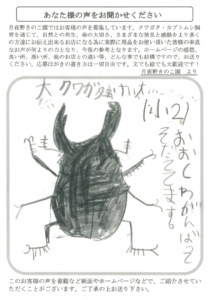 あなた様の声をお聞かせください
月夜野きのこ園ではお客様の声を募集しています。クワガタ・カブトムシ飼
育を通じて、自然との共生、命の大切さ、さまざまな発見と感動をより多く
の方達にお伝え出来るお店になる為に実際に用品をお使い頂いた皆様の率直
なお声が何よりの力となり、今後の参考となります。ホームページの感想、
良い所、悪い所、他のお店との違い等、どんな事でも結構ですので、お送り
ください。応募はがきの書き方は一切自由です。文でも絵でも大歓迎です!
月夜野きのこ園 より
大クワガタ
おおきく
がんばって
そだてます。
このお客様の声を書籍など紙面やホームページなどで、ご紹介させてい
ただくことがございます。ご了承の上お送り下さい。